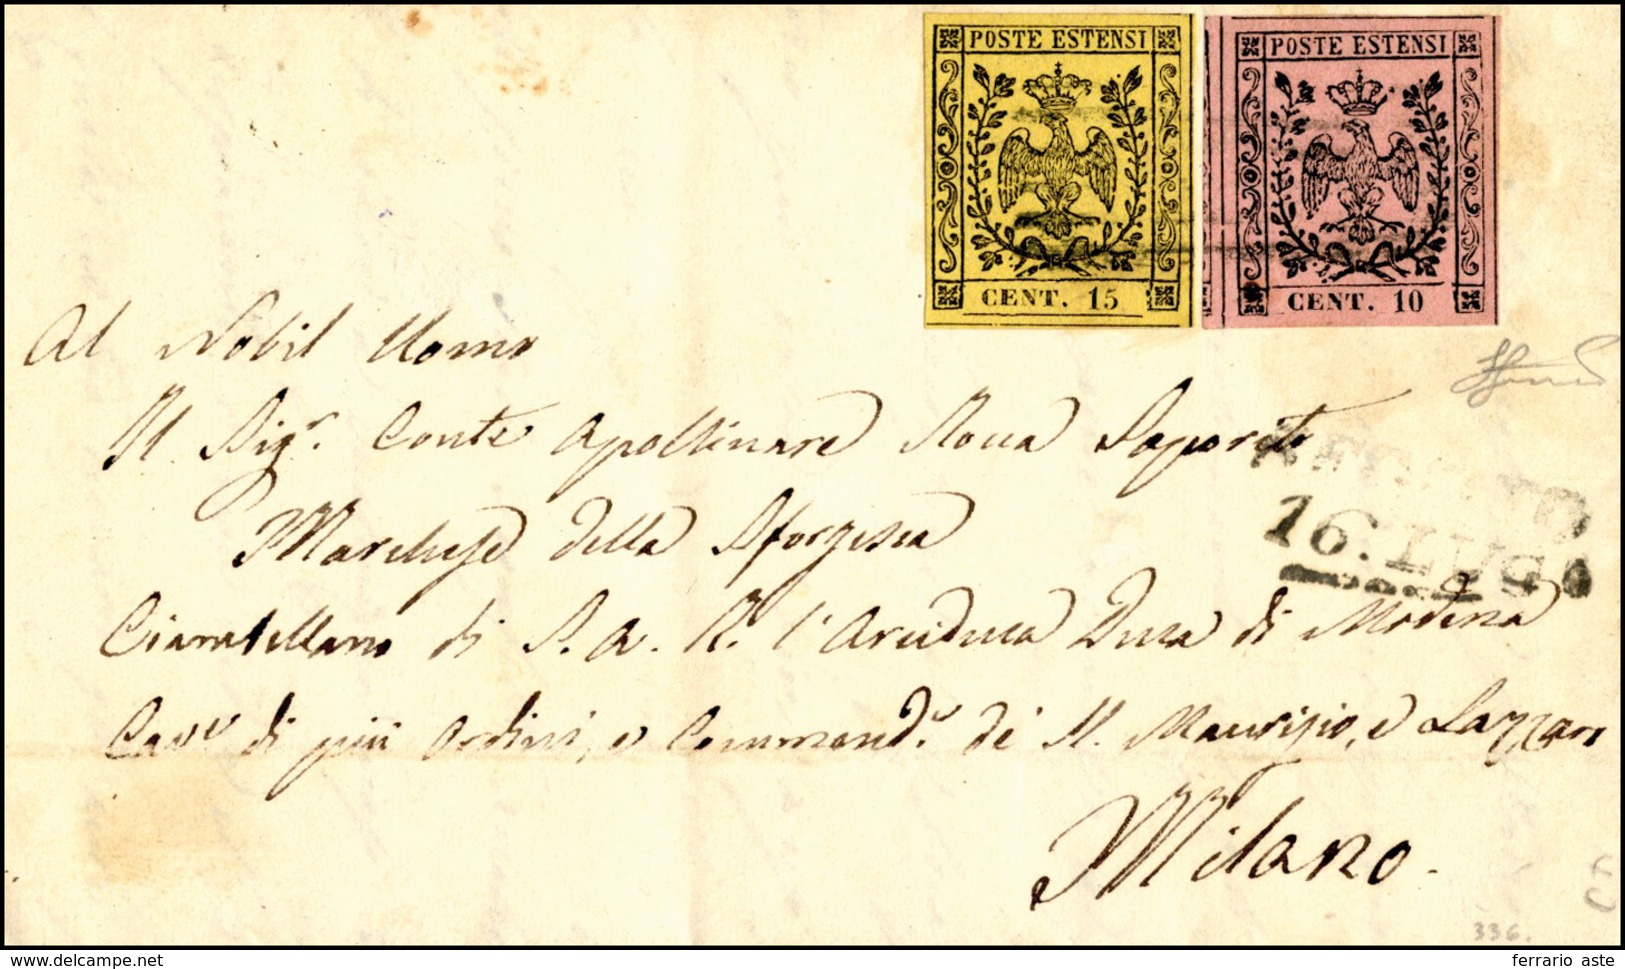 POSTE ESTENSI
CENT. 15
POSTE ESTENSI
CENT. 10
Al Nobil Uomo
Il Sigr. Conte Apollinare Rocca Saporiti
Marchese della Sforzesca
16. LUG
Ciambellano di S. A. R. l'Arciduca Duca di Modena
Cave di più Ordini, e Command.e de' SS. Maurizio, e Lazzaro
Milano.
336.
www.delcampe.net
ferrario aste